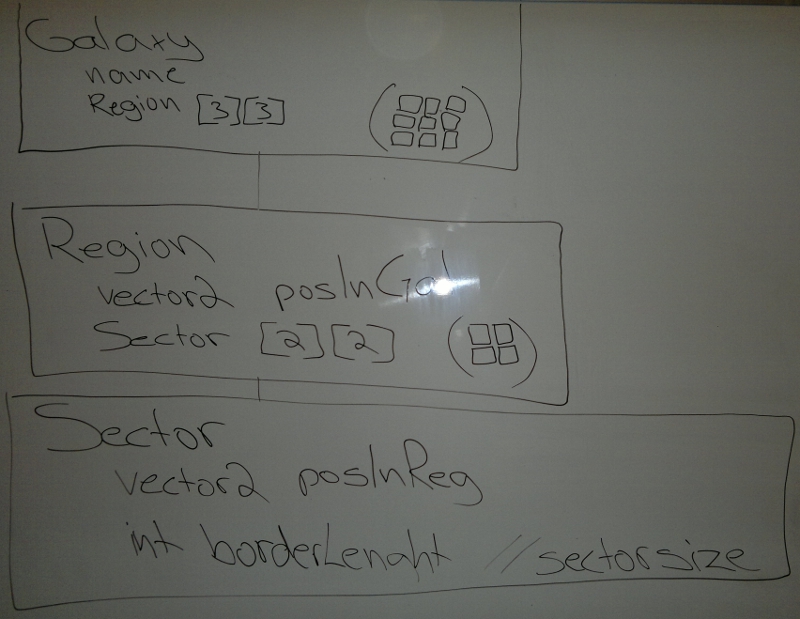 Galaxy
name
Region [3][3]
Region
vector2 posInGal
Sector [2][2]
Sector
vector2 posInReg
int borderLenght //sectorsize